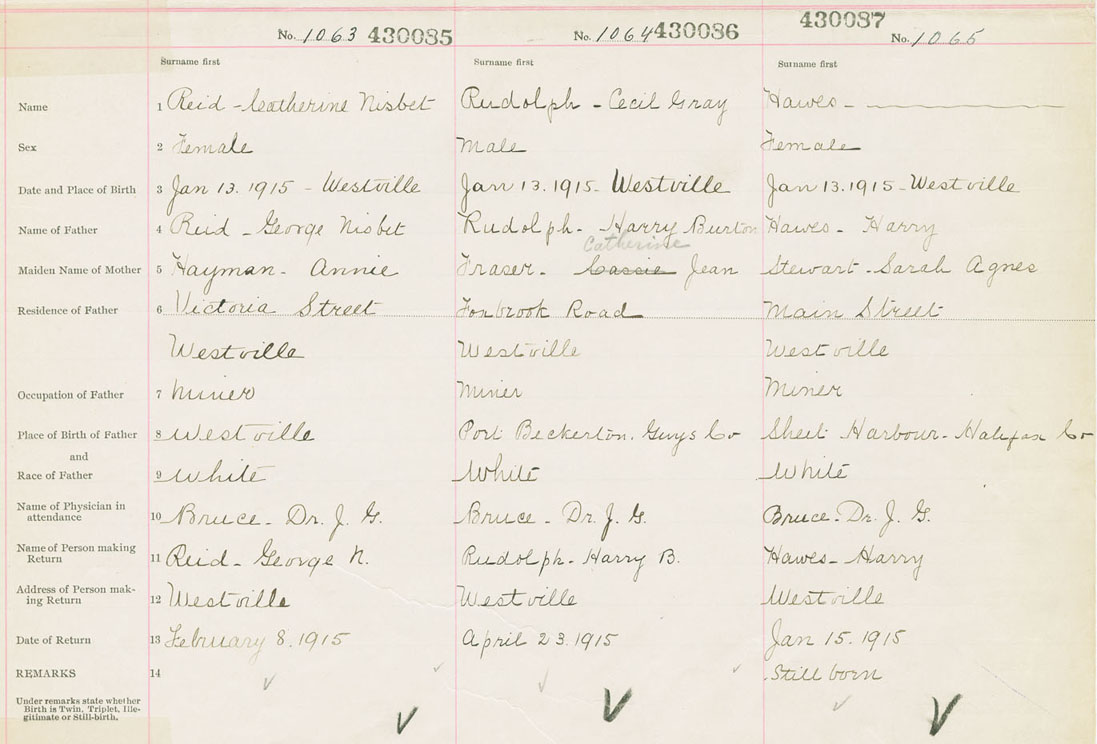 No. 1063 430085 No. 1064 430086 430087 No. 1065
Surname first Surname first Surname first
Name 1 Reid - Catherine Nisbet Rudolph - Cecil Gray Hawes -
Sex 2 Female Male Female
Date and Place of Birth 3 Jan 13. 1915 - Westville Jan 13. 1915 - Westville Jan 13. 1915 - Westville
Name of Father 4 Reid - George Nisbet Rudolph - Harry Burton Hawes - Harry
Catherine
Maiden Name of Mother 5 Hayman - Annie Fraser - Cassie Jean Stewart - Sarah Agnes
Residence of Father 6 Victoria Street Foxbrook Road Main Street
Westville Westville Westville
Occupation of Father 7 Miner Miner Miner
Place of Birth of Father 8 Westville Port Beckerton. Guys Co Sheet Harbour - Halifax Co
and
Race of Father 9 White White White
Name of Physician in
attendance 10 Bruce - Dr. J. G. Bruce - Dr. J. G. Bruce - Dr. J. G.
Name of Person making
Return 11 Reid - George N. Rudolph - Harry B. Hawes - Harry
Address of Person mak-
ing Return 12 Westville Westville Westville
Date of Return 13 February 8. 1915 April 23. 1915 Jan 15. 1915
REMARKS 14 Still born
Under remarks state whether
Birth is Twin, Triplet, Ille-
gitimate or Still-birth.